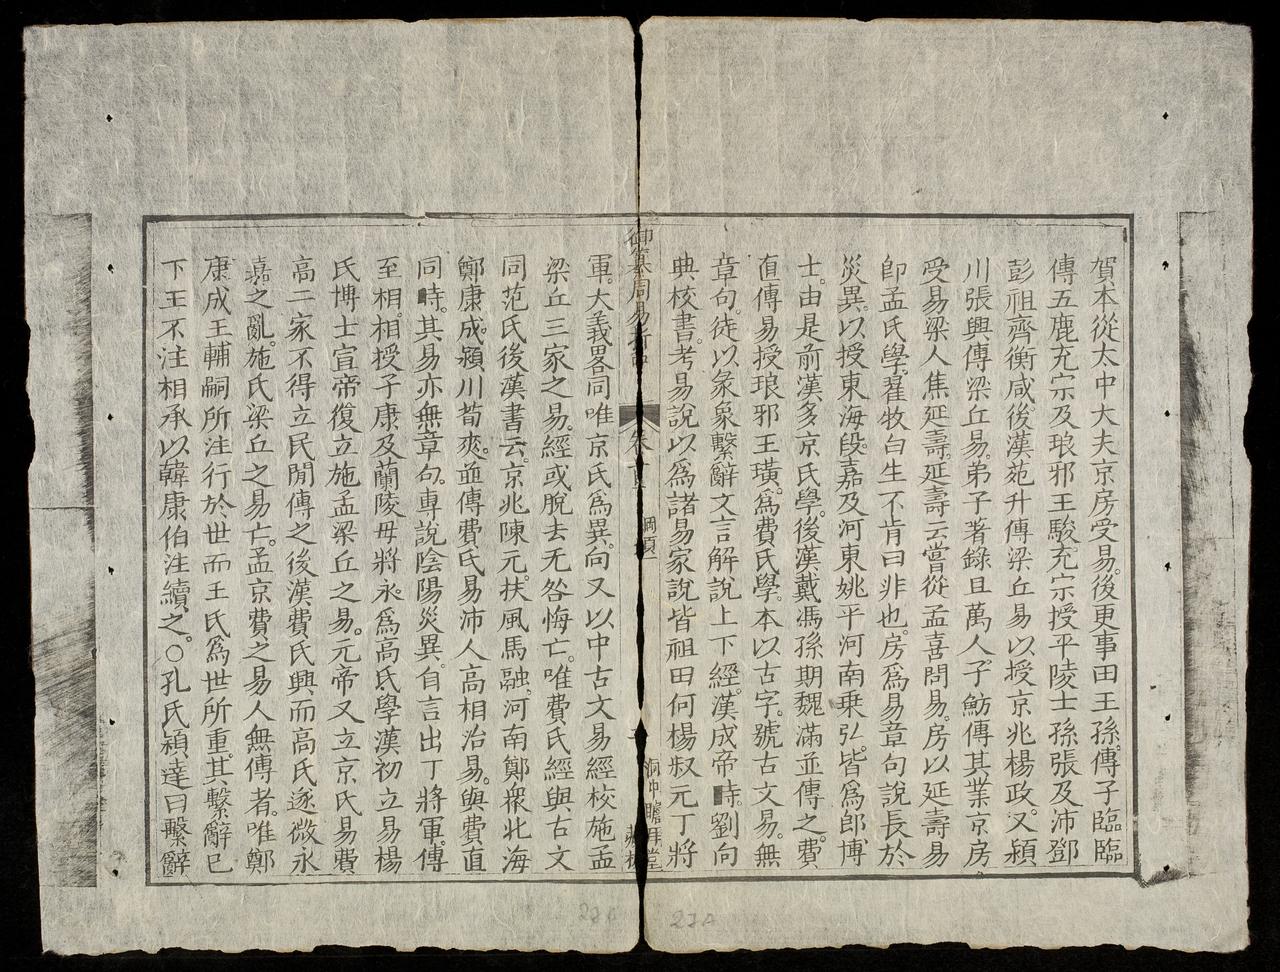 賀本從太中大夫京房受易後更事田王孫傳子臨臨
傳五鹿充宗及琅邪王駿充宗授平陵士孫張及沛鄧
彭祖齊衡咸後漢范升傳梁丘易以授京兆楊政又潁
川張興傳梁丘易弟子著錄且萬人子魴傳其業京房
受易梁人焦延壽延壽云嘗從孟喜問易房以延壽易
即孟氏學翟牧白生不肯曰非也房爲易章句說長於
災異以授東海段嘉及河東姚平河南乗弘皆爲郎博
士由是前漢多京氏學後漢戴馮孫期魏滿並傳之費
直傳易授琅邪王璜爲費氏學本以古字號古文易無
章句徒以彖象繫辭文言解說上下經漢成帝時劉向
典校書考易說以爲諸易家說皆祖田何楊叔元丁將
御纂周易折中 卷首 綱領一
軍大義畧同唯京氏爲異向又以中古文易經校施孟
梁丘三家之易經或脫去无咎悔亡唯費氏經與古文
同范氏後漢書云京兆陳元扶風馬融河南鄭衆北海
鄭康成潁川荀爽並傳費氏易沛人高相治易與費直
同時其易亦無章句專說陰陽災異自言出丁將軍傳
至相相授子康及蘭陵毋將永爲高氏學漢初立易楊
氏博士宣帝復立施孟梁丘之易元帝又立京氏易費
高二家不得立民閒傳之後漢費氏興而高氏遂微永
嘉之亂施氏梁丘之易亡孟京費之易人無傳者唯鄭
康成王輔嗣所注行於世而王氏爲世所重其繫辭已
下王不注相承以韓康伯注續之○孔氏穎達曰繫辭